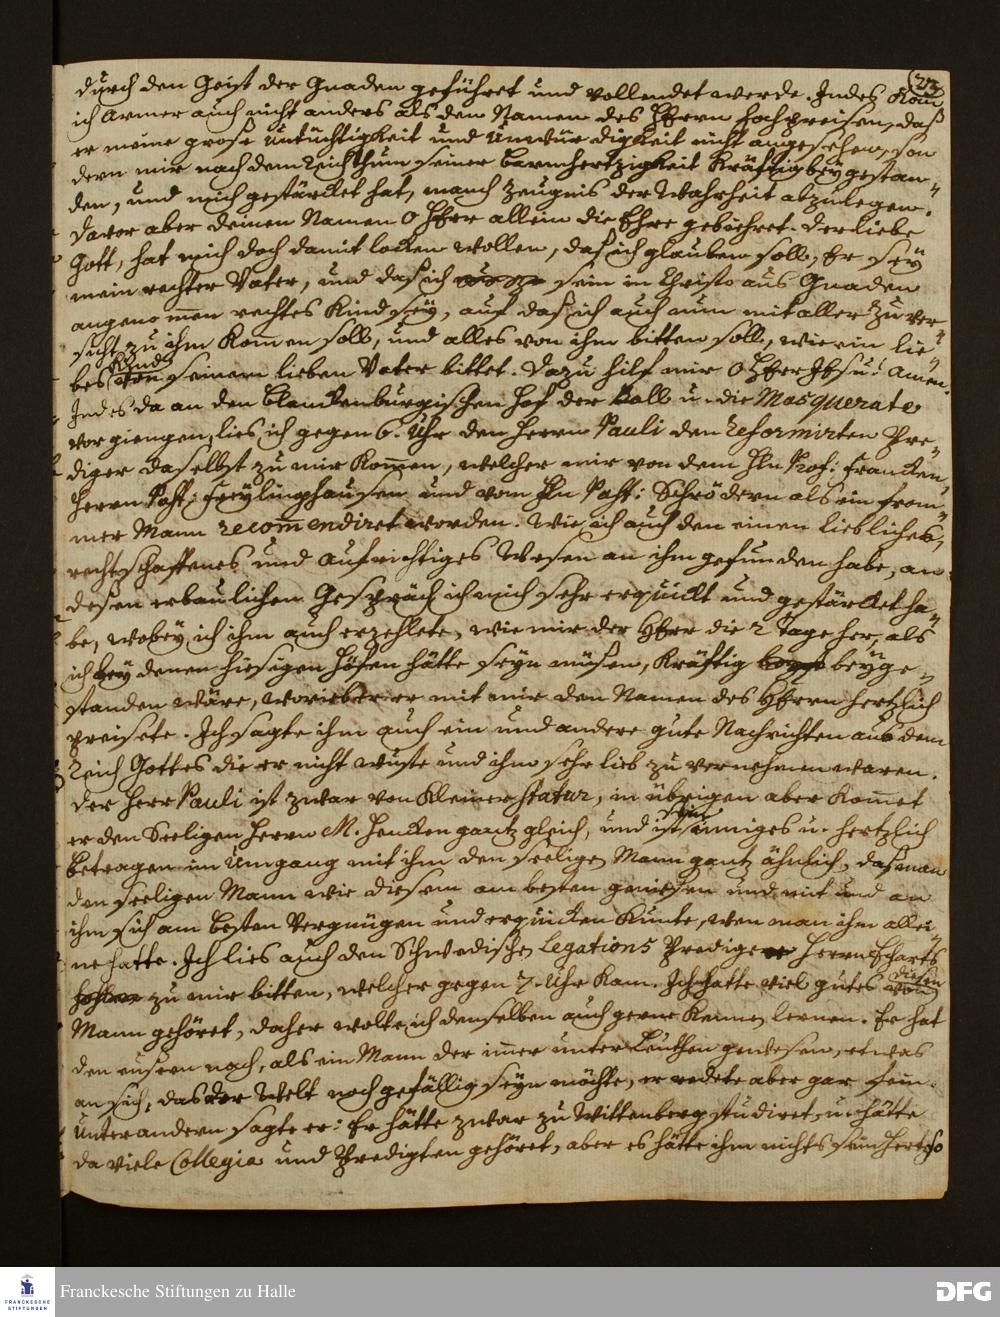 (23
durch den Geist der Gnaden geführet und vollendet werde. Indes kan
ich Armer auch nicht anders als den Namen des HErrn hochpreisen, daß
er meine große untüchtigkeit und Unwürdigkeit nicht angesehen, son
dern mir nach dem Reichthum seiner Barmhertzigkeit kräftig beygestan
den, und mich gestärcket hat, manch Zeugnis der Wahrheit abzulegen.
Davor aber deinem Namen O HErr allein die Ehre gebühret. Der liebe
Gott, hat mich doch damit locken wollen, daß ich glauben soll, Er sey
mein rechter Vater, und daß ich sein in Christo aus Gnaden
angenommen rechtes Kind sey, auf daß ich auch nun mit aller Zuver
sicht zu ihm kommen soll, und alles von ihm bitten soll, wie ein lie
bes Kind seinen lieben Vater bittet. Dazu hilf mir O HErr JEsu! Amen.
Indes da an den Blanckenburgischen Hof der Ball u. die Masquerate
vorgiengen, lies ich gegen 6. Uhr den Herrn Pauli den reformirten Pre
diger daselbst zu mir kommen, welcher mir von dem Hln Prof: Francken,
Herrn Past: Freylinghausen und vom Hln Past: Schrödern als ein from
mer Mann recommendiret worden. Wie ich auch den einen liebliches,
rechtschaffenes und aufrichtiges Wesen an ihm gefunden habe, an
deßen erbaulichen Gespräch ich mich sehr erquickt und gestärcket ha
be, wobey ich ihm auch erzehlete, wie mir der HErr die 2 Tage her, als
ich bey denen hiesigen Höfen hätte seyn müßen, kräftig beyge
standen wäre, worüber er mit mir den Namen des HErrn hertzlich
preisete. Ich sagte ihm auch ein und andere gute Nachrichten aus dem
Reich Gottes die er nicht wuste und ihm sehr lieb zu vernehmen waren.
Der Herr Pauli ist zwar von kleiner statur, in übrigen aber kommet
er den Seeligen Herrn M. Hencken gantz gleich, und ist sein inniges u. hertzlich
betragen im Umgang mit ihm den seeligen Mann gantz ähnlich, daß man
den seeligen Mann wie diesem am besten genießen und mit und an
ihm sich am besten Vergnügen und erquicken kunte, wen man ihm allei
ne hatte. Ich lies auch den Schwedischen Legations Prediger Herrn Eckarts
zu mir bitten, welcher gegen 7. Uhr kam. Ich hatte viel gutes von diesen
Mann gehöret, daher wolte ich denselben auch gerne kennen lernen. Er hat
den eusern nach, als ein Mann der immer unter Leuthen gewesen, etwas
an sich, das der Welt noch gefällig seyn möchte, er redete aber gar fein.
Unter andern sagte er: Er hätte zwar zu Wittenberg studiret, u. hätte
da viele Collegia und Predigten gehöret, aber es hätte ihm nichts sein Hertz so
Franckesche Stiftungen zu Halle
FRANCKESCHE
STIFTUNGEN
DFG